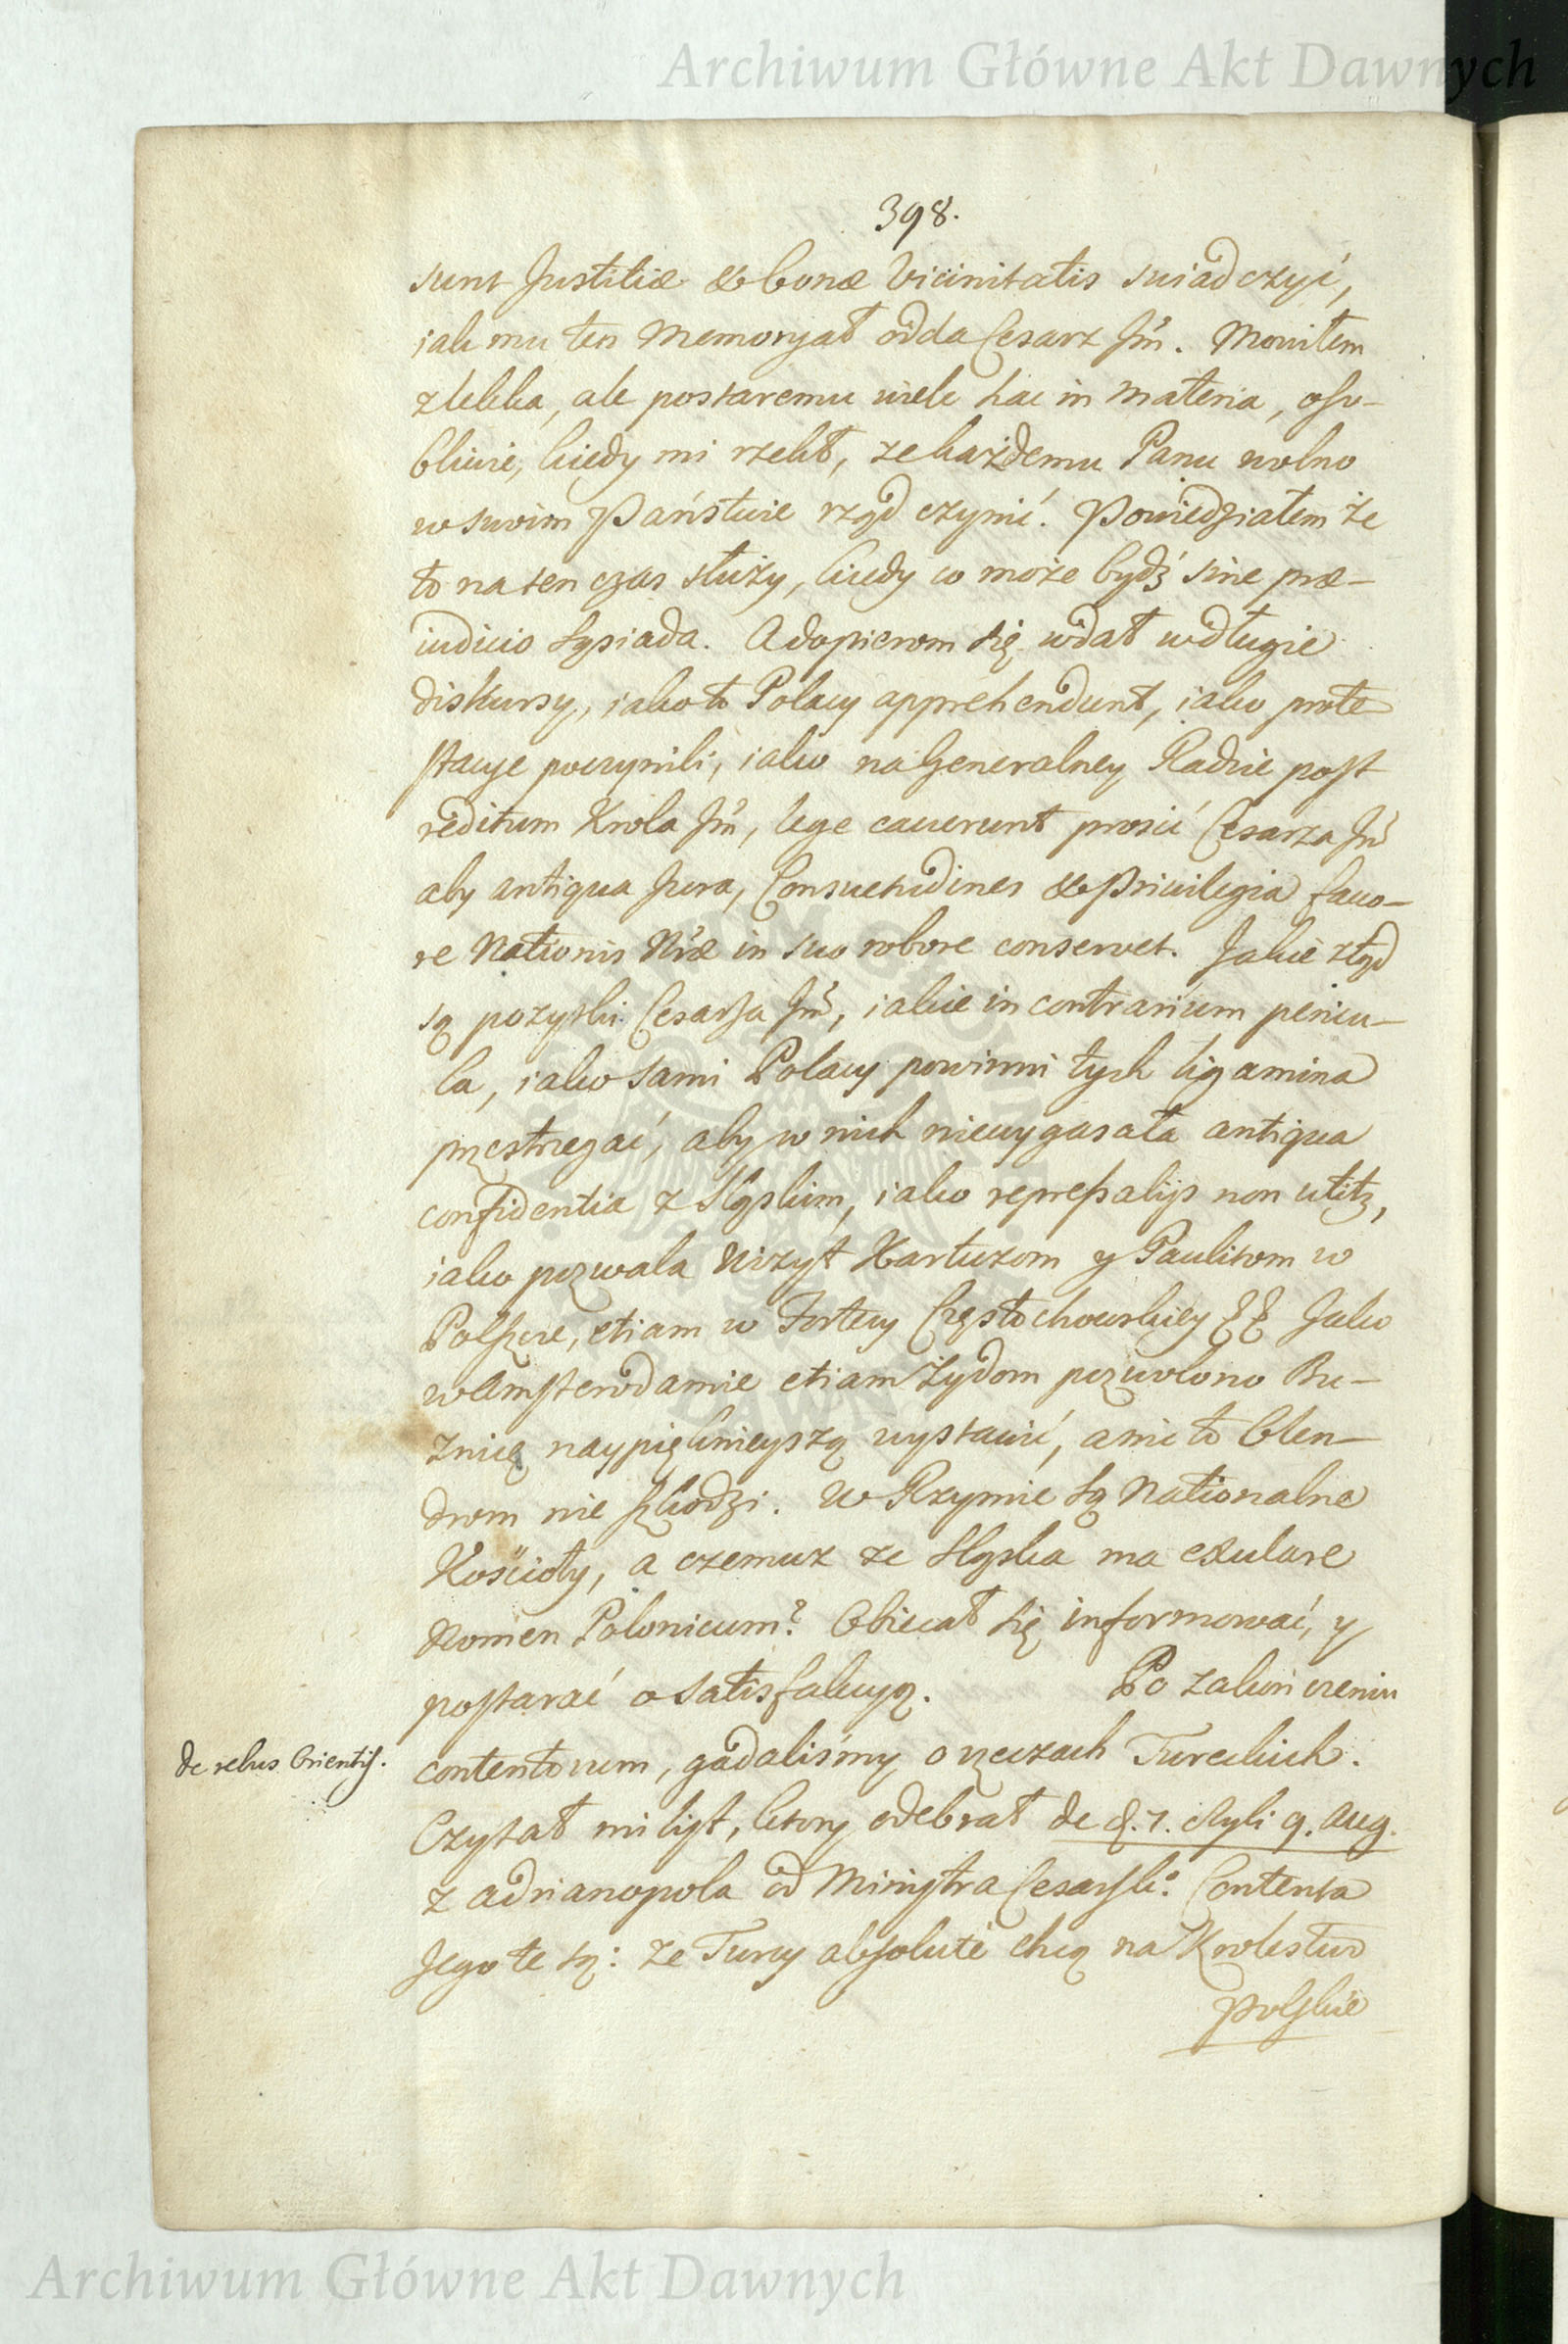 Archiwum Główne Akt Dawnych
398.
sunt Justitiæ & bonæ Vicinitatis swiadczyć,
iak mu ten Memoryał odda Cesarz Jm̃. Mowiłem
zlekka, ale postaremu wiele hac in materia, oso-
bliwie, kiedy mi rzekł, ze każdemu Panu wolno
w swoim Państwie rząd czynić. Powiedziałem że
to na ten czas służy, kiedy co może bydź sine præ-
iudicio Sąsiada. A dopierom się wdał w długie
diskursy, iako to Polacy apprehendunt, iako prote
stacye poczynili, iako na Generalney Radzie post
reditum Krola Jm̃, lege caverunt prosić Cesarza Jm̃
aby antiqua Jura, Consuetudines & Privilegia favo-
re Nationis Nr̃æ in suo robore conservet. Jakie ztąd
są pozyski Cesarza Jm̃, iakie in contrarium pericu-
la, iako sami Polacy powinni tych ligamina
przestrzegać, aby w nich niewygasała antiqua
confidentia z Sląskim, iako repressalijs non utitz,
iako pozwala Wizyt Kartuzom y Paulinom w
Polszcze, etiam w Fortecy Częstochowskiey && Jako
w Amsterodamie etiam Żydom pozwolono Bu-
znicę naypięknieyszą wystawić, a nic to Olen-
drom nie szkodzi. W Rzymie są Nationalne
Kościoły, a czemuz ze Sląska ma exulare
Nomen Polonicum? Obiecał się informować, y
postarać o satisfakcyą. Po zakończeniu
de rebus Orientis.
contentorum, gadaliśmy o rzeczach Tureckich.
Czytał mi list, ktory odebrał de d. 7. styli 9. Aug.
z Adrianopola od Ministra Cesarsk<sup>o</sup>. Contenta
Jego te są: że Turcy absolutè chcą na Krolestwo
Polskie
Archiwum Główne Akt Dawnych